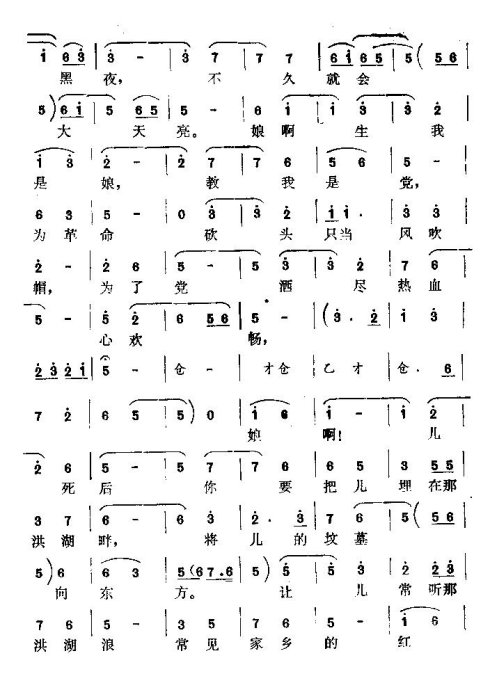 i 6 3 | 3 - | 3 7 | 7 7 | 6 i 6 5 | 5 ( 5 6 |
黑夜， 不 久就会
5 ) 6 i | 5 6 5 | 5 - | 6 i | 3 3 | 2
大 天亮。 娘啊 生 我
i 3 | 2 - | 2 7 | 7 6 | 5 6 | 5 -
是娘， 教 我是 党，
6 3 | 5 - | 0 3 | 3 2 | i i · | 3 3
为革命 砍 头只当 风吹
2 - | 7 6 | 5 - | 3 3 | 3 2 | 7 6
帽， 为了党 洒 尽热血
5 - | 5 2 | 6 5 6 | 5 - | ( 3 · 2 | i 3
心欢 畅，
2 3 2 i | 5 - | 仓 - | 才仓 | 乙才 | 仓 · 6
7 2 | 6 5 | 5 ) 0 | i 6 | i - | i 2
娘 啊！ 儿
2 6 | 5 - | 5 7 | 7 6 | 6 5 | 3 5 5
死后 你 要把儿埋在那
3 7 | 6 - | 6 3 | 2 · 3 | 7 6 | 5 ( 5 6
洪湖畔， 将 儿 的坟墓
5 ) 6 | 6 3 | 5 ( 6 7 · 6 | 5 ) 5 | 5 3 | 2 2 3
向东 方。 让 儿 常听那
7 6 | 5 - | 7 6 | 5 3 | 5 - | i 6
洪湖浪 常见家乡的 红